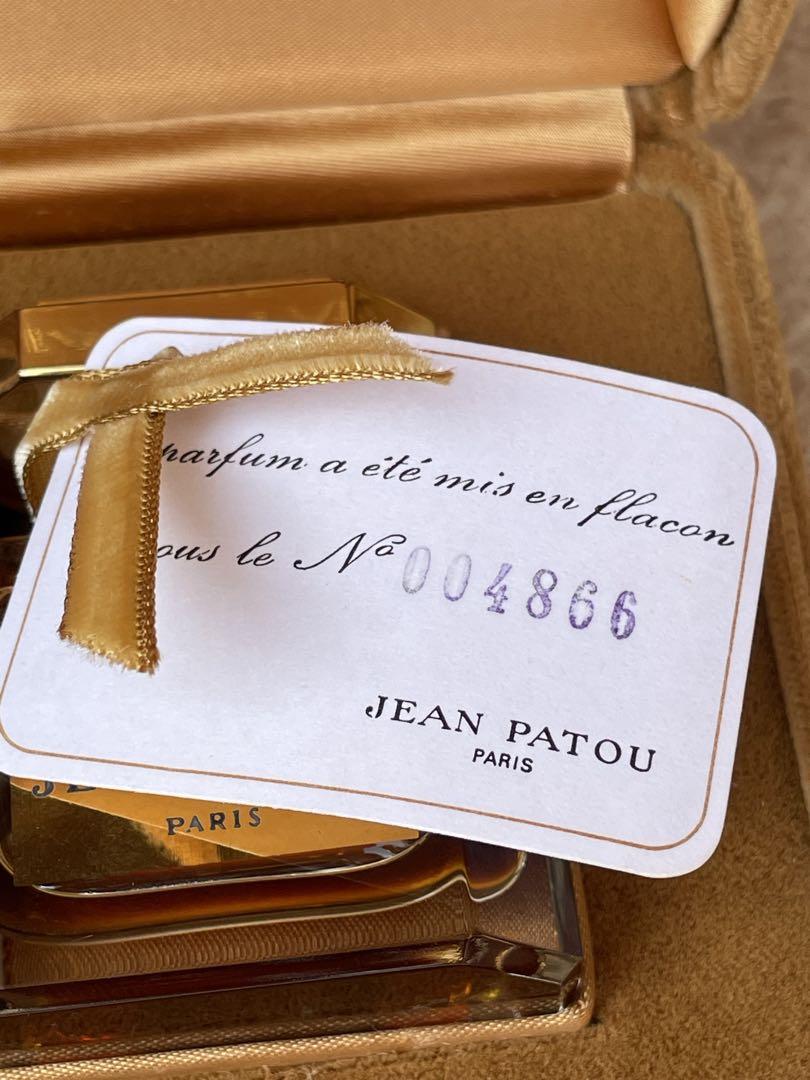 parfum a été mis en flacon
ous le Nº 004866
JEAN PATOU
PARIS
PARIS